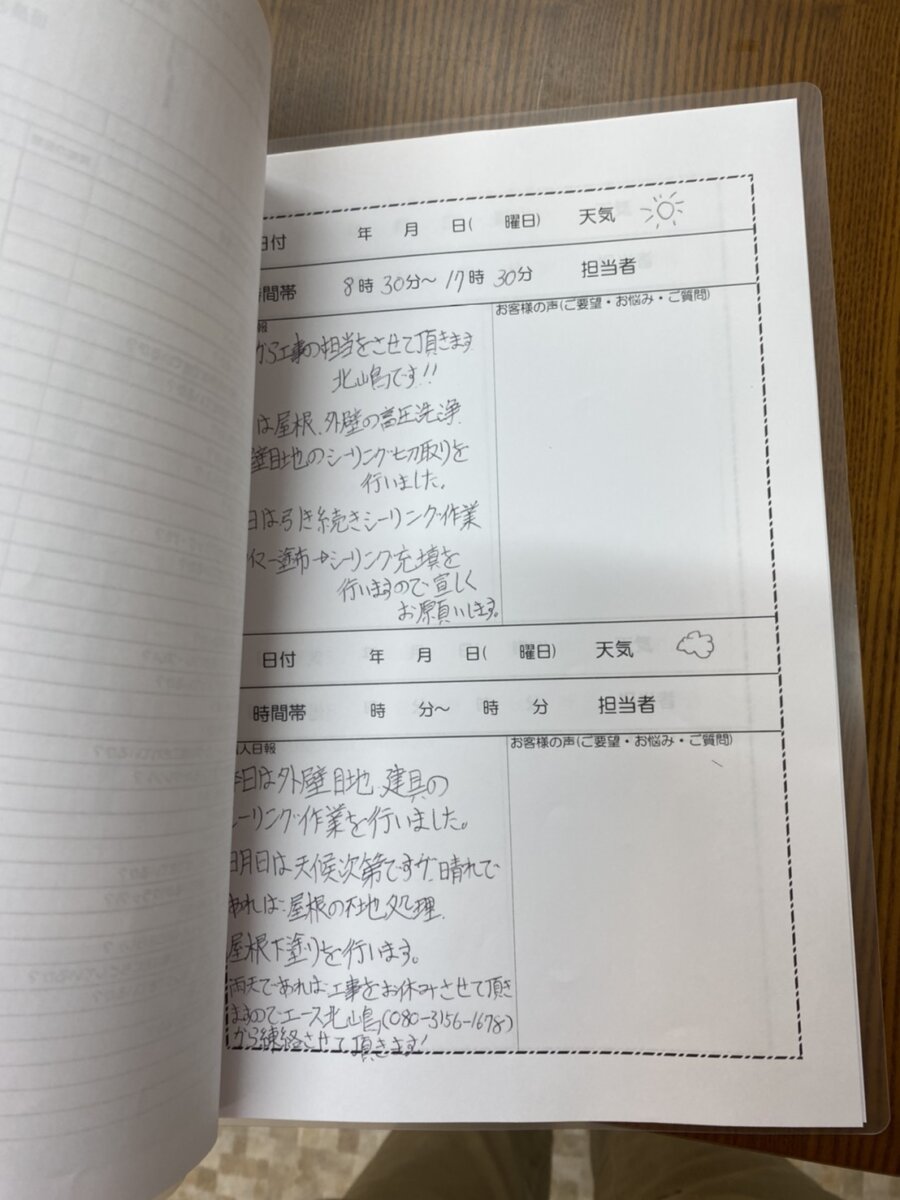 日付 年 月 日( 曜日) 天気
時間帯 8時30分～17時30分 担当者
報
お客様の声(ご要望・お悩み・ご質問)
から工事の担当をさせて頂きます
北山鳥です!!
は屋根、外壁の高圧洗浄、
壁目地のシーリング切取りを
行いました。
日は引き続きシーリング作業
イマー塗布→シーリング充填を
行いますので宜しく
お願いします。
日付 年 月 日( 曜日) 天気
時間帯 時 分～ 時 分 担当者
人日報
お客様の声(ご要望・お悩み・ご質問)
今日は外壁目地、建具の
シーリング作業を行いました。
明日は天候次第ですが、晴れで
あれば、屋根の下地処理、
屋根下塗りを行います。
雨天であれば工事をお休みさせて頂き
ますのでエース北山鳥(080-3156-1678)
から連絡させて頂きます!